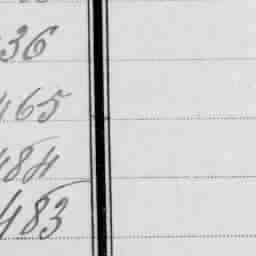 36
465
484
483